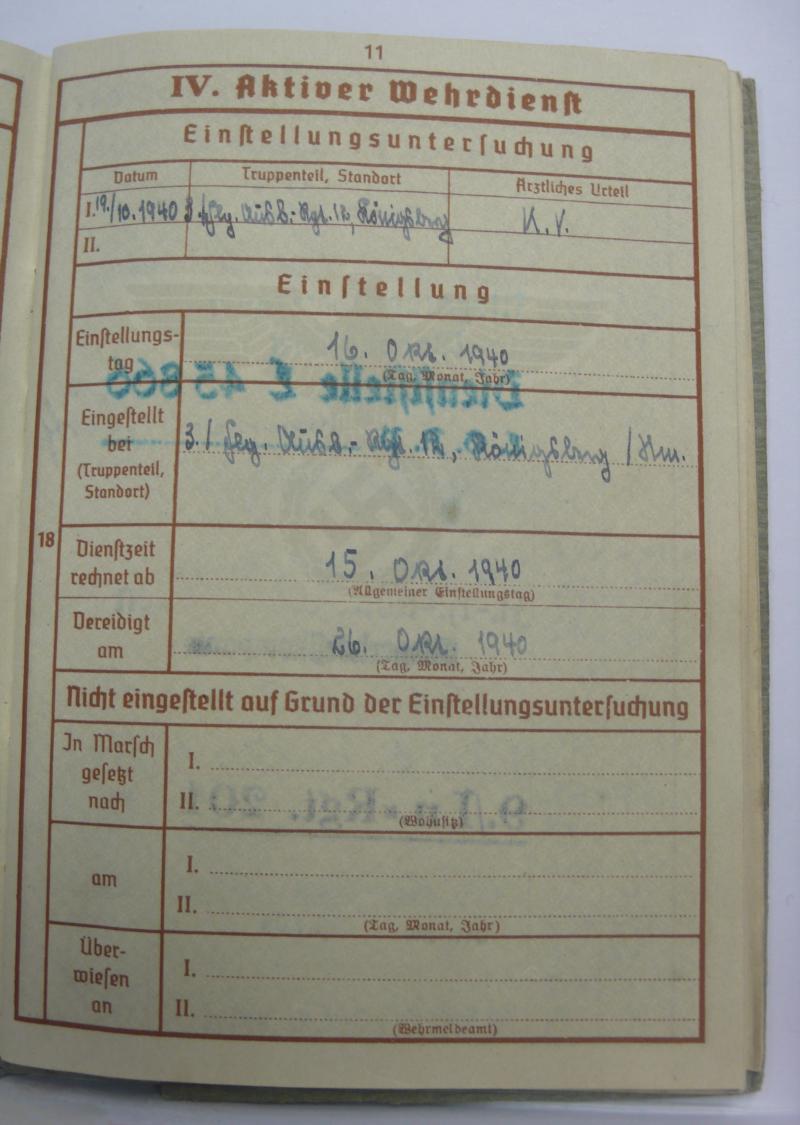 11
IV. Aktiver Wehrdienst
Einstellungsuntersuchung
Datum Truppenteil, Standort Ärztliches Urteil
I. 19./10. 1940 3./Flg. Ausb.-Rgt. 12, Königsberg K.V.
II.
Einstellung
Einstellungs-
tag
16. Okt. 1940
(Tag, Monat, Jahr)
Dienststelle L 45860
Eingestellt
bei
(Truppenteil,
Standort)
3./ Flg. Ausb.- Rgt. 12, Königsberg / Nm.
18
Dienstzeit
rechnet ab
15. Okt. 1940
(Allgemeiner Einstellungstag)
Vereidigt
am
26. Okt. 1940
(Tag, Monat, Jahr)
Nicht eingestellt auf Grund der Einstellungsuntersuchung
In Marsch
gesetzt
nach
I.
II.
(Wohnsitz)
am
I.
II.
(Tag, Monat, Jahr)
Über-
wiesen
an
I.
II.
(Wehrmeldeamt)